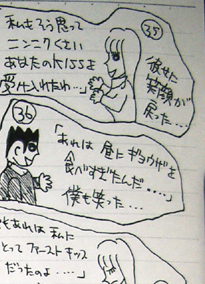 ㉟
彼女に
笑顔が
戻った…
私もそう思って
ニンニクくさい
あなたのKISSを
受け入れたわ…」
㊱
「あれは 昼にギョウザを
食べすぎたんだ….」
僕も笑った…
もあれは 私に
とって ファーストキッス
だったのよ….」